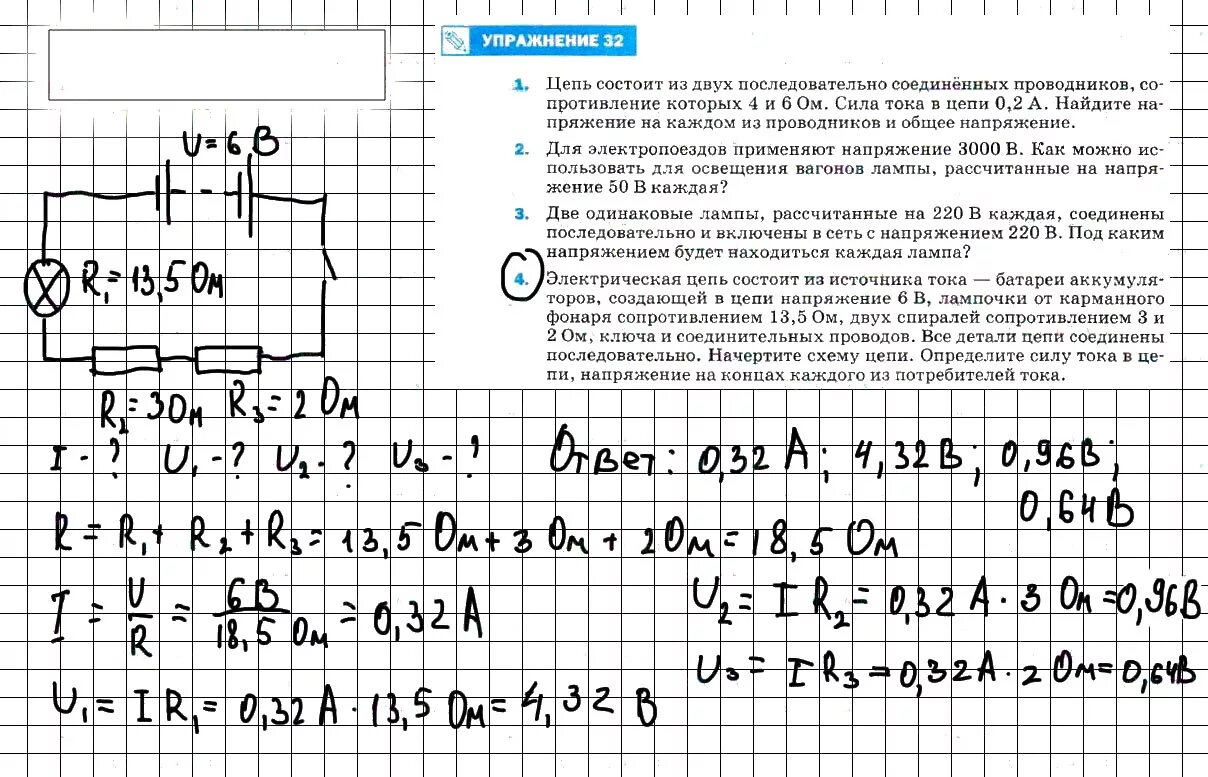 УПРАЖНЕНИЕ 32
1. Цепь состоит из двух последовательно соединённых проводников, со-
противление которых 4 и 6 Ом. Сила тока в цепи 0,2 А. Найдите на-
пряжение на каждом из проводников и общее напряжение.
2. Для электропоездов применяют напряжение 3000 В. Как можно ис-
пользовать для освещения вагонов лампы, рассчитанные на напря-
жение 50 В каждая?
3. Две одинаковые лампы, рассчитанные на 220 В каждая, соединены
последовательно и включены в сеть с напряжением 220 В. Под каким
напряжением будет находиться каждая лампа?
4. Электрическая цепь состоит из источника тока — батареи аккумуля-
торов, создающей в цепи напряжение 6 В, лампочки от карманного
фонаря сопротивлением 13,5 Ом, двух спиралей сопротивлением 3 и
2 Ом, ключа и соединительных проводов. Все детали цепи соединены
последовательно. Начертите схему цепи. Определите силу тока в це-
пи, напряжение на концах каждого из потребителей тока.
U=6 В
R₁=13,5 Ом
R₂=3Ом R₃=2 Ом
I-? U₁-? U₂-? U₃-?
Ответ: 0,32 А; 4,32В; 0,96В;
0,64В
R = R₁+ R₂+R₃=13,5 Ом+3 Ом+2Ом=18,5 Ом
I = U/R = 6В/18,5 Ом = 0,32 А
U₁= I R₁= 0,32 А·13,5 Ом=4,32 В
U₂= I R₂= 0,32 А·3 Ом=0,96В
U₃= I R₃=0,32А·2 Ом=0,64В